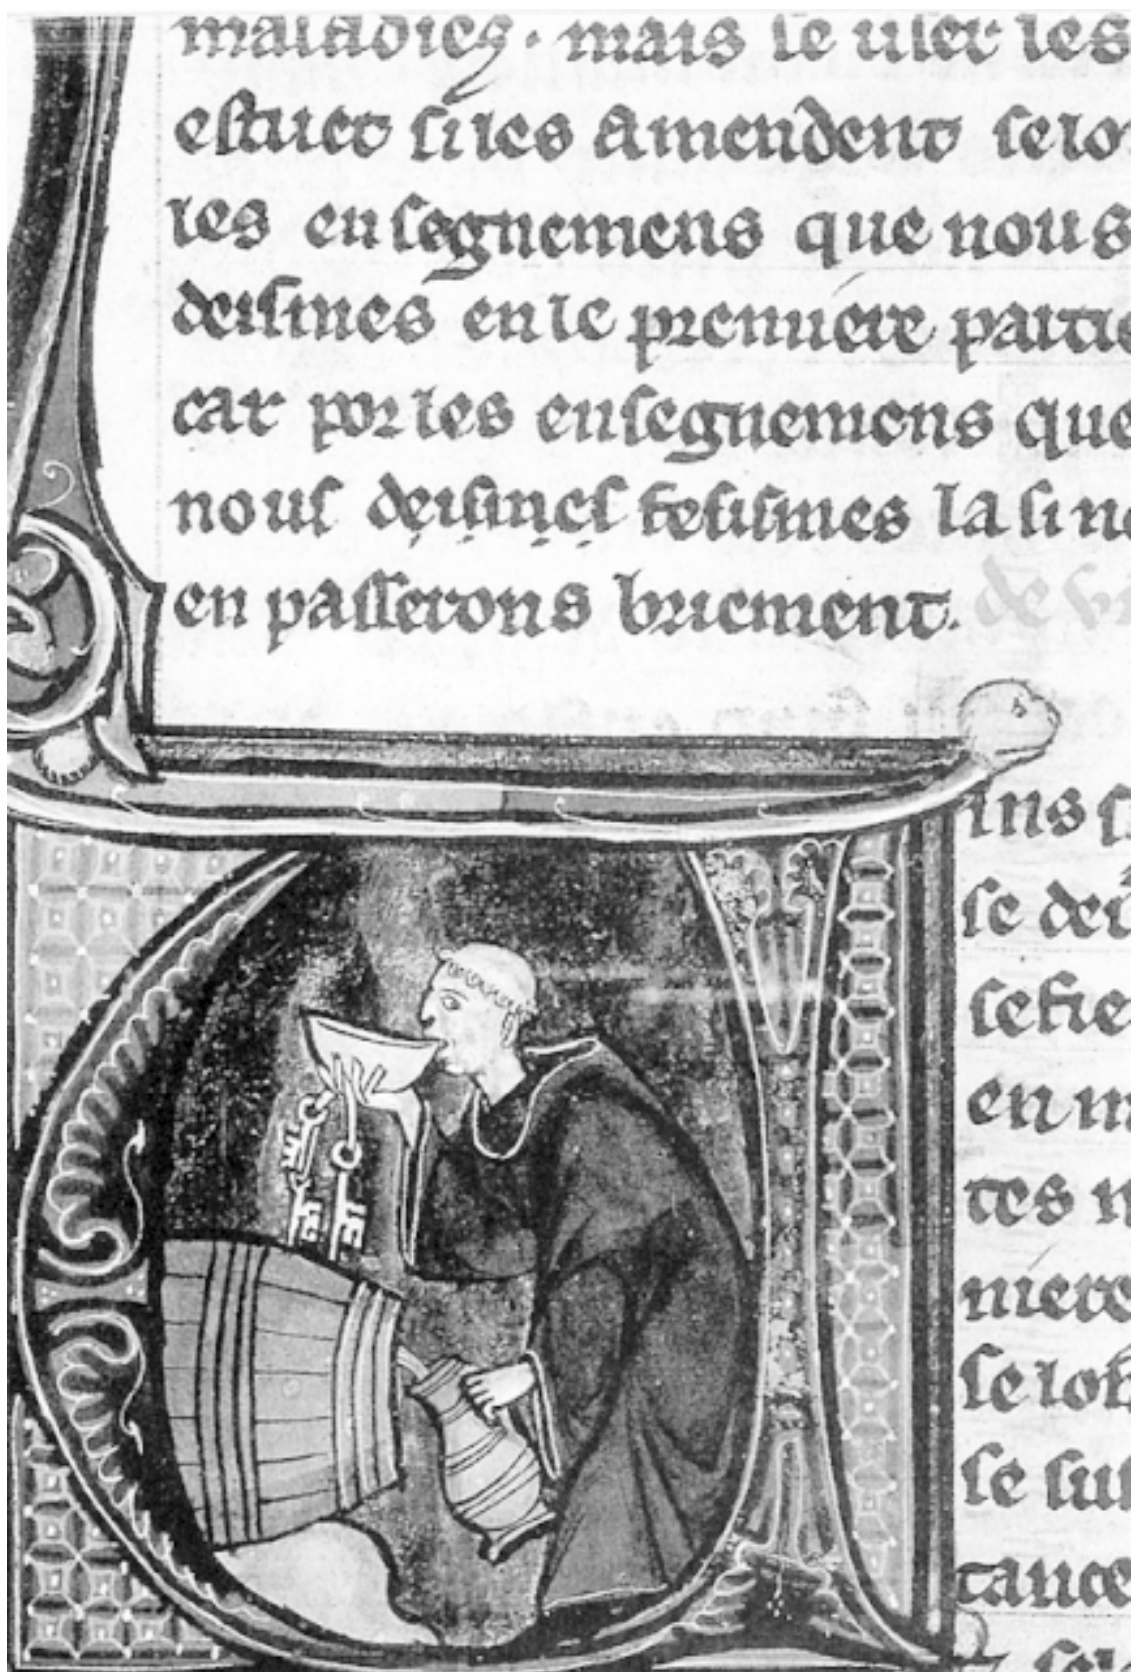 maladies · mais se user les
estuet si les amendent selo
les ensegnemens que nous
deismes en le premiere partie
car por les ensegnemens que
nous deismes fesismes la si
en passerons briement. de vi
ins
se
en
tes
niere
se
se
tance